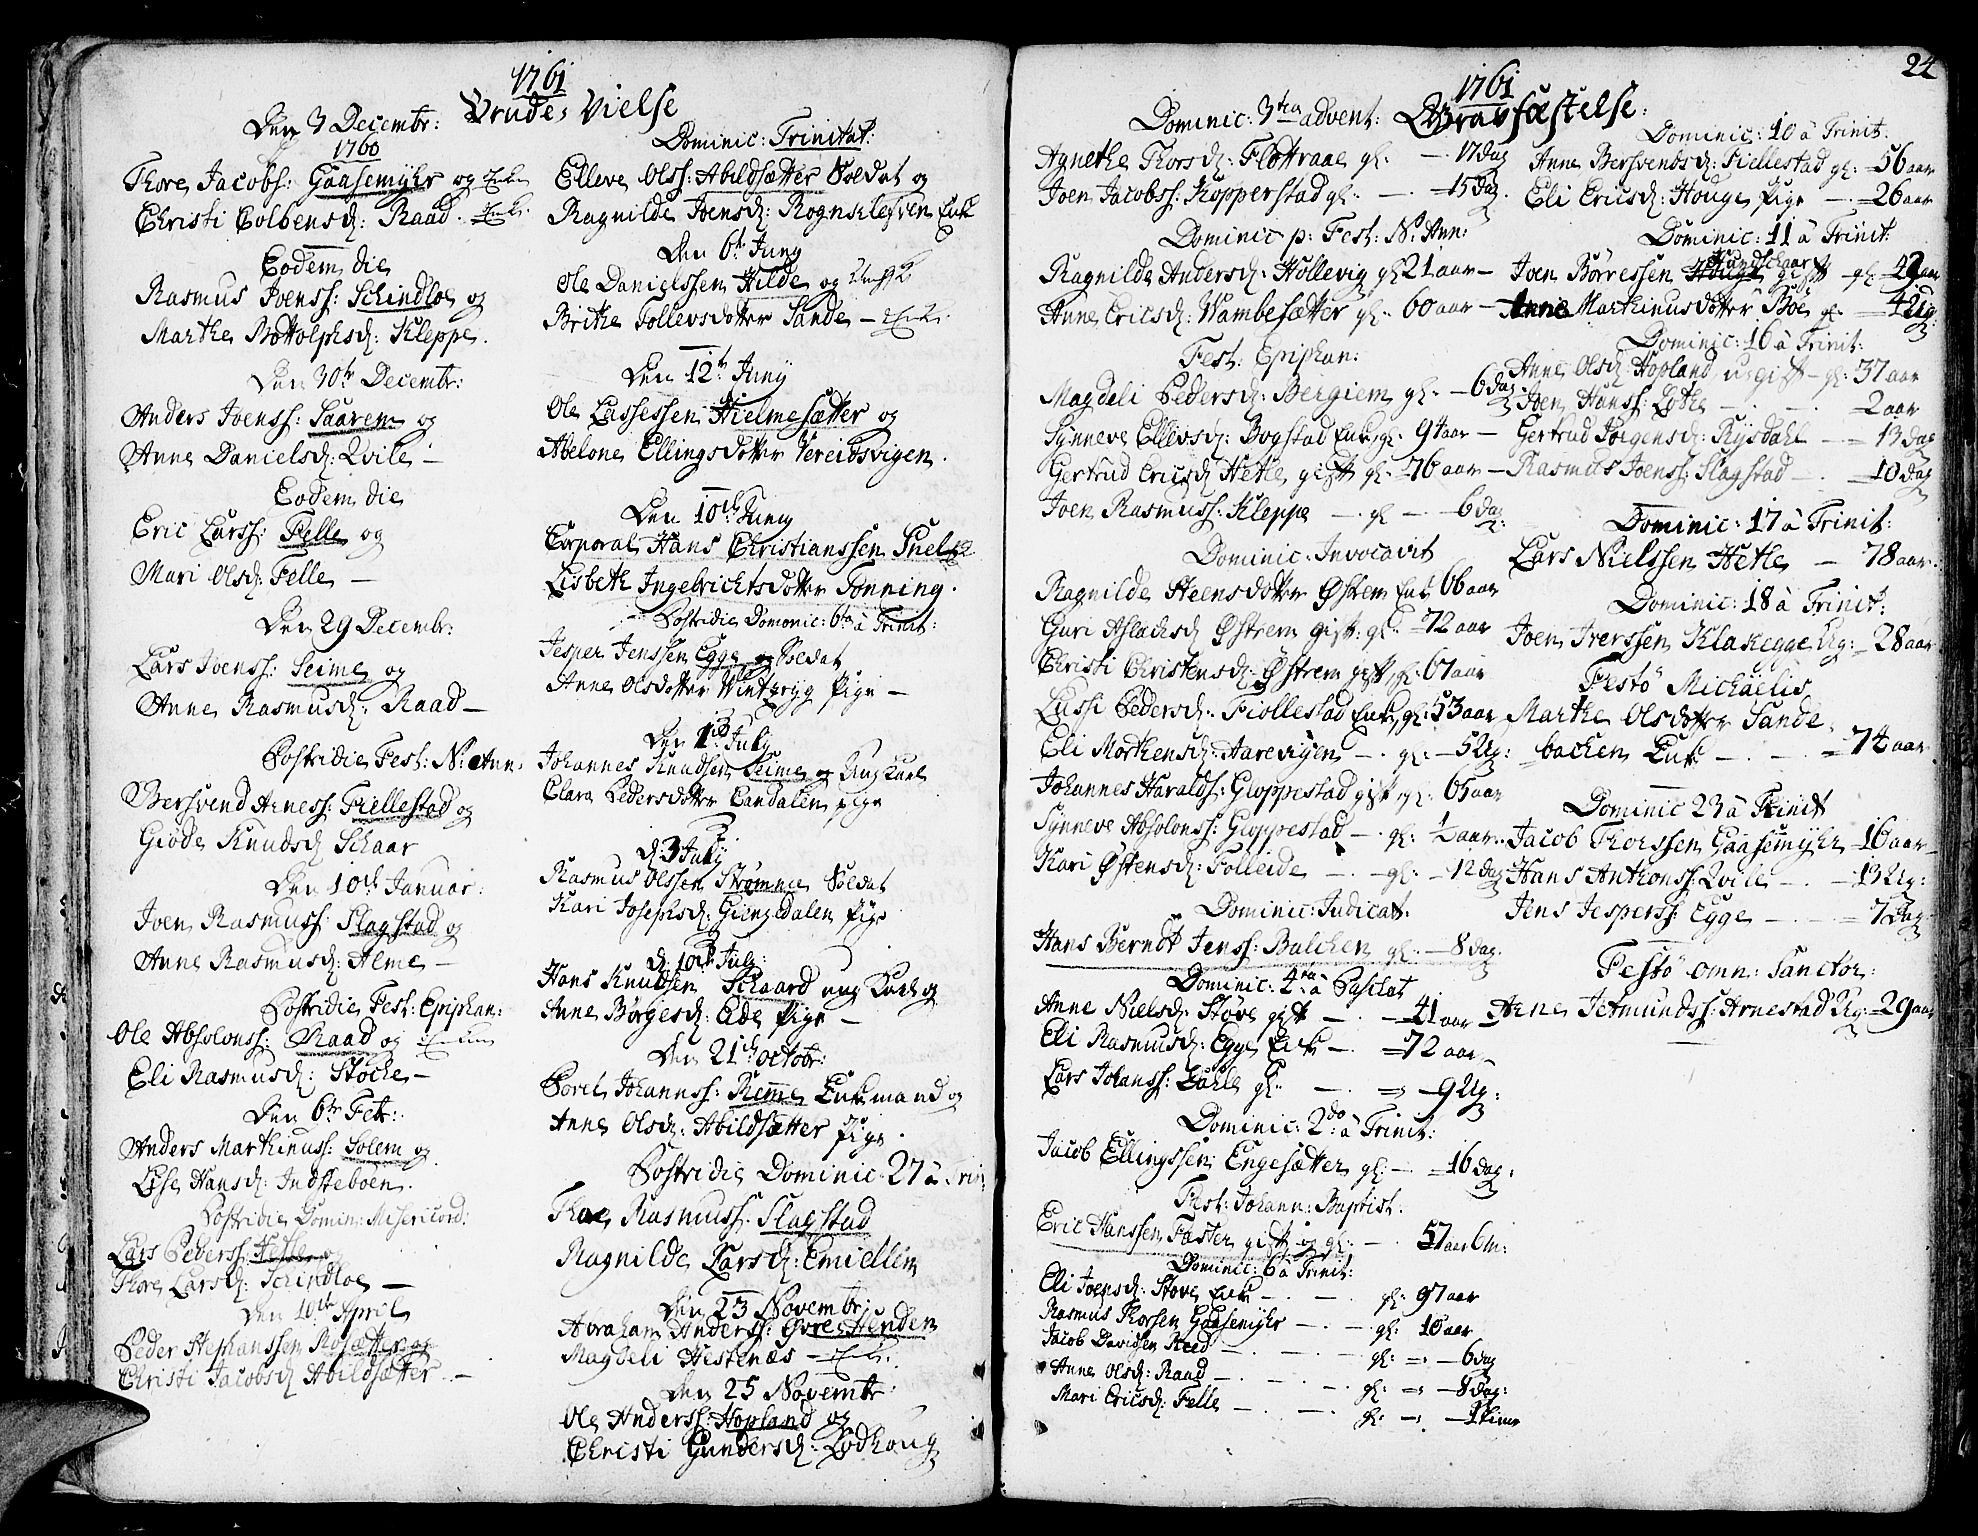 1761
Brude, Vielse
Den 3 Decembr:
1760
Thore Jacobs: Gaasemyhr og
Christi Colbensd: Raad.
Eodem die
Rasmus Joenss: Schindloe og
Marthe Bottolphsd: Kleppe.
Den 30te Decembr:
Anders Joenss: Saarem og
Anne Danielsd: Qvile —
Eodem die
Eric Larss: Felle og
Mari Olsd: Felle —
Den 29 Decembr:
Lars Joenss: Seime og
Anne Rasmusd: Raad —
Postridie Fest: N: Ann:
Bersvend Arness: Fiellestad og
Giøde Knudsd Schaar
Den 10de Januar:
Joen Rasmuss: Slagstad og
Anne Rasmusd: Alme —
Postridie Fest: Epiphan:
Ole Absolonss: Raad og
Eli Rasmusd: Støche —
Den 6te Febr:
Anders Marthinuss: Solem og
Lise Hansd: Indsteboen.
Postridie Domin: Misericord:
Lars Pederss: Hesle og
Thore Larsd: Schindloe —
Den 10de April
Peder Stephanssen Rosætter og
Christi Jacobsd Abildsætter —
Dominic: Trinitat:
Elleve Olss: Abildsætter Soldat og
Ragnilde Joensd: Rognkleyven Enk
Den 6te Juny
Ole Danielssen Hilde og Ung K
Brithe Tollevsdotter Sande —
Den 12te Juny
Ole Lassessen Hielmesætter og
Abelone Ellingsdotter Vereidsvigen.
Den 10de Juny
Corporal Hans Christianssen Snel
Lisbeth Ingebrichtsdotter Tonning.
Postridie Domonic: 6ta a Trinit:
Jesper Jenssen Egge og Soldat
Anne Olsdotter Vintgryg Pige —
Den July
Johannes Knudsen Seime og Ungkarl
Clara Pedersdotter Candalen pige
d: 3 July
Rasmus Olssen Strømme Soldat
Kari Josephsd: Giengedalen Pige
d: 10de July:
Hans Knudsen Schaard ung karl og
Anne Børgesd: Eide Pige —
Den 21de Octobr:
Povel Johanness: Remme Enkemand og
Anne Olsd: Abildsætter Pige.
Postridie Dominic. 27 a Trin:
Thore Rasmuss. Slagstad
Ragnilde Larsd: Emiellem
Den 23 Novembr:
Abraham Anderss: Øvre Henden
Magdeli Hestenæs —
Den 25 Novembr
Ole Anderss: Hopland og
Christi Gundersd: Lodhoug
24
1761
Gravfæstelse:
Dominic: 3tia advent:
Agnethe Thorsd: Flottraae gl: — 17 dag
Joen Jacobss: Kopperstad gl: — 15 Dag.
Dominic p: Fest: N: Ann:
Ragnilde Andersd: Hollevig gl 21 aar —
Anne Ericsd: Wambesætter gl: 60 aar —
Fest: Epiphan:
Magdeli Pedersd: Bergiem gl: — 6 dag
Synneve Ellevsd: Bogstad Enk, gl: 94 aar —
Gertrud Ericsd Hetle gift gl: 76 aar —
Joen Rasmuss: Kleppe — gl — 6 dag
Dominic: Invocavit
Ragnilde Steensdotter Østrem Enk 66 aar
Guri Aslachsd Østrem gift: gl: — 72 aar
Christi Christensd: Østrem gift, gl: 67 aar
Lussi Pedersd: Fiollestad Enk, gl: 53 aar
Eli Morthensd: Aarevigen — gl: — 5 Ug:
Johannes Haralds: Gloppestad gift gl: 65 aar
Synneve Absolonss: Gloppestad — gl: ½ aar.
Kari Østensd: Folleide — gl: — 12 dag
Dominic: Judicat:
Hans Berndt Jenss: Balchen gl: — 8 dag.
Dominic: 4ta a Paschat
Anne Nielsd: Støve gift — 41 aar —
Eli Rasmusd: Egge Enk — 72 aar —
Lars Johanss: Eahle gl: — 9 Ug:
Dominic: 2do a Trinit:
Jacob Ellingssen Engesætter gl: — 16 dag:
Fest: Johann: Baptist:
Eric Hanssen Faster gift og gl: — 57 aar 6 m:
Dominic: 6 a Trinit:
Eli Joensd: Stove Enk — gl: 97 aar
Rasmus Thorsen Gaasemyhr — gl: 10 aar
Jacob Davidsen Reed — gl: — 6 dag
Anne Olsd: Raad — gl: — 8 dag:
Mari Ericsd: Felle — gl: — 1 time
Dominic: 10 a Trinit:
Anne Bersvendsd: Fiellestad gl: — 56 aar
Eli Ericsd: Houge Pige — 26 aar
Dominic: 11 a Trinit:
Joen Børressen Rundschaar gift — gl: 42 aar
Anne Marthinusdotter Böe gl: — 42 Ug:
Dominic: 16 a Trinit:
Anne Olsd: Hopland, ugift — gl: 37 aar
Joen Hanss: Lothe — 2 aar
Gertrud Jørgensd: Rysdahl — 13 dag
Rasmus Joenss: Slagstad — 10 dag
Dominic: 17 a Trinit:
Lars Nielssen Hetle — 78 aar.
Dominic: 18 a Trinit:
Joen Iverssen Klakegge Ug: — 28 aar
Festo Michaelis
Marthe Olsdotter Sande
bachen Enk — 74 aar
Dominic 23 a Trinit
Jacob Thorssen Gaasemyhr — 16 aar
Hans Anthonss: Qvile — 13 Ug:
Jens Jesperss: Egge — 7 Dag
Festo omn: Sanctor:
Arne Jetmundss: Arnestad Ug: — 29 aar